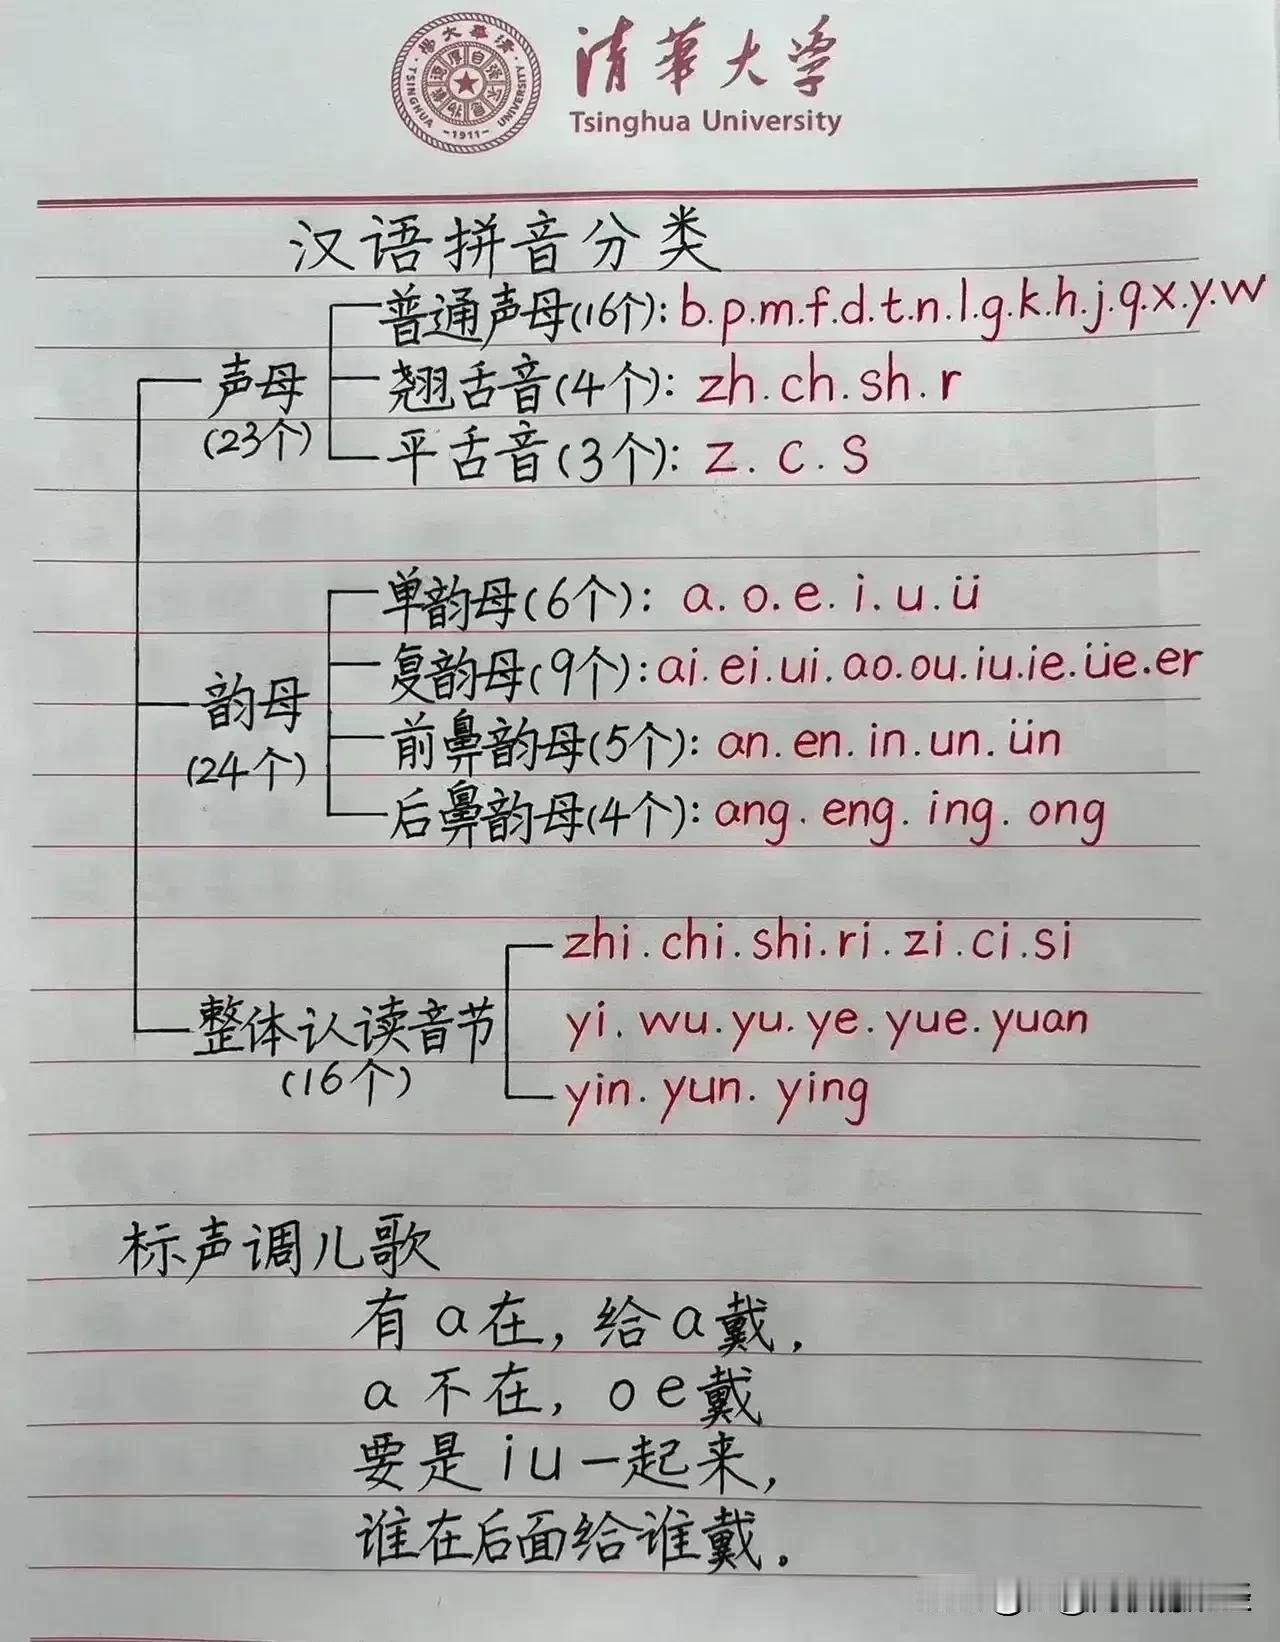 清華大学
Tsinghua University
TSINGHUA UNIVERSITY
-1911-
汉语拼音分类
普通声母(16个): b.p.m.f.d.t.n.l.g.k.h.j.q.x.y.w
声母
(23个)
翘舌音(4个): zh.ch.sh.r
平舌音(3个): z.c.s
单韵母(6个): a.o.e.i.u.ü
韵母
(24个)
复韵母(9个): ai.ei.ui.ao.ou.iu.ie.üe.er
前鼻韵母(5个): an.en.in.un.ün
后鼻韵母(4个): ang.eng.ing.ong
整体认读音节
(16个)
zhi.chi.shi.ri.zi.ci.si
yi.wu.yu.ye.yue.yuan
yin.yun.ying
标声调儿歌
有a在,给a戴,
a不在,oe戴
要是iu一起来,
谁在后面给谁戴.